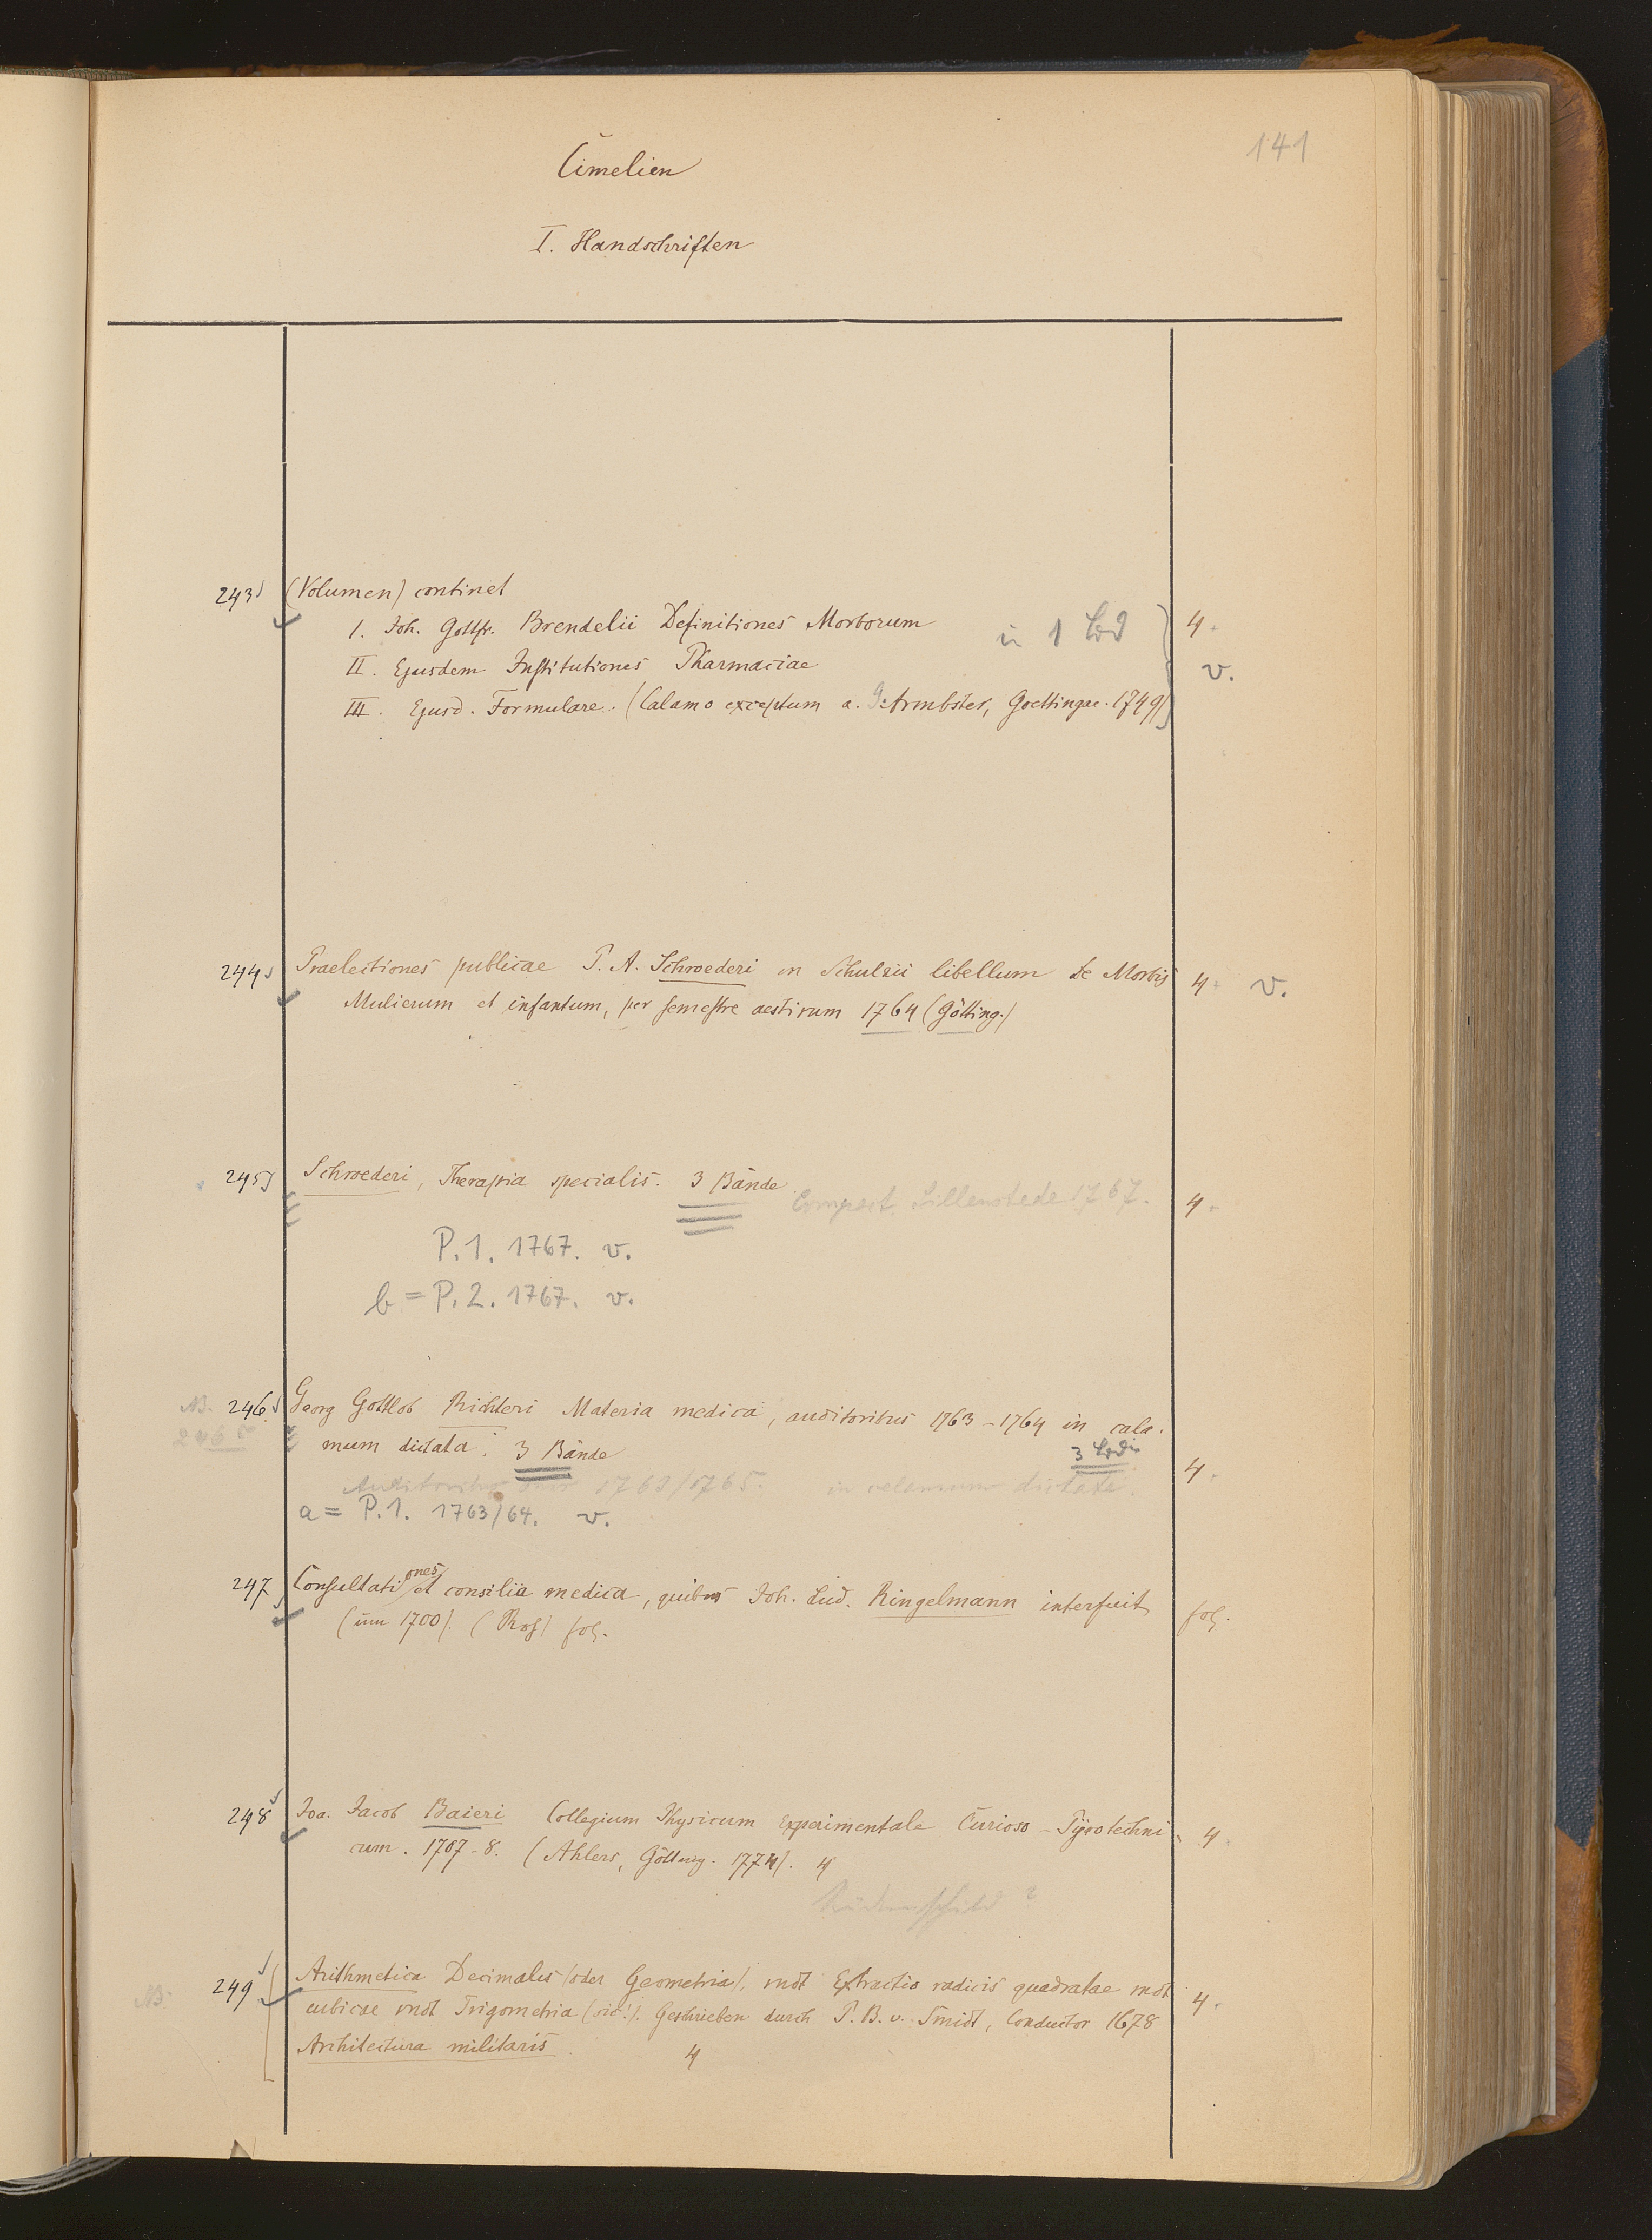 141
Cimelien
I. Handschriften
243 (Volumen) continet
I. Joh. Gottfr. Brendelii Definitiones Morborum in 1 Bd 4.
II. Ejusdem Institutiones Pharmaciae v.
III. Ejusd. Formulare. (Calamo exceptum a. G. Armbster, Goettingae. 1749)
244 Praelectiones publicae P. A. Schroederi in Schulzii libellum de Morbis 4. v.
Mulierum et infantum, per semestre aestivum 1764 (Götting.)
245 Schroederi, Therapia specialis. 3 Bände
Sillenstede 1767. 4.
P. 1. 1767. v.
b = P. 2. 1767. v.
NB. 246 Georg Gottlob Richteri Materia medica, auditoribus 1763-1764 in cala-
246b mum dictata. 3 Bände 3 Bde 4.
Auditoribus 1763/1765. in calamum dictata.
a = P. 1. 1763/64. v.
247 Consultationes et consilia medica, quibus Joh. Lud. Ringelmann interfuit fol.
(um 1700). (Ros) fol.
248 Joa. Jacob Baieri Collegium Physicum Experimentale Curioso-Pyrotechni- 4.
cum. 1707-8. (Ahlers, Götting. 1774). 4
Rückenschild?
NB. 249 Arithmetica Decimalis (oder Geometria). vndt Extractio radicis quadratae vndt 4.
cubicae vndt Trigometria (sic!). Geschrieben durch P. B. v. Smidt, Conductor 1678
Architectura militaris. 4